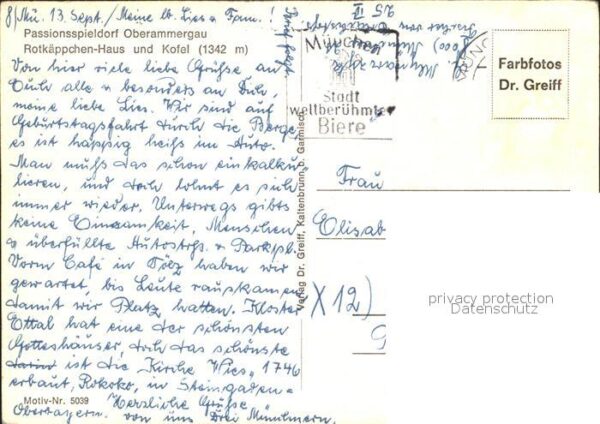 8/ Mü. 13. Sept./ Meine lb. Lies u Fam.!
Passionsspieldorf Oberammergau
Rotkäppchen-Haus und Kofel (1342 m)
Von hier viele liebe Grüße an
Euch alle u besonders an Euch,
meine liebe Lies. Wir sind auf
Geburtstagsfahrt durch die Berge,
es ist häppig heiß im Auto.
Man muß das schon einkalku
lieren, und doch lohnt es sich
immer wieder. Unterwegs gibts
keine Einsamkeit, Menschen
u überfüllte Autostrß. u Parkpl.
Vorm Café in Tölz haben wir
gewartet, bis Leute rauskamen
damit wir Platz hatten. Kloster
Ettal hat eine der schönsten
Gotteshäuser, doch das schönste
ist die Kirche "Wies", 1746
erbaut, Rokoko, in Steingaden-
Oberbayern. Herzliche Grüße
von uns drei Münchnern.
Motiv-Nr. 5039
Verlag Dr. Greiff, Kaltenbrunn b. Garmisch
München
Stadt
weltberühmter
Biere
Farbfotos
Dr. Greiff
8000 München
25 VI
Frau
Elisab
X 12)
privacy protection
Datenschutz